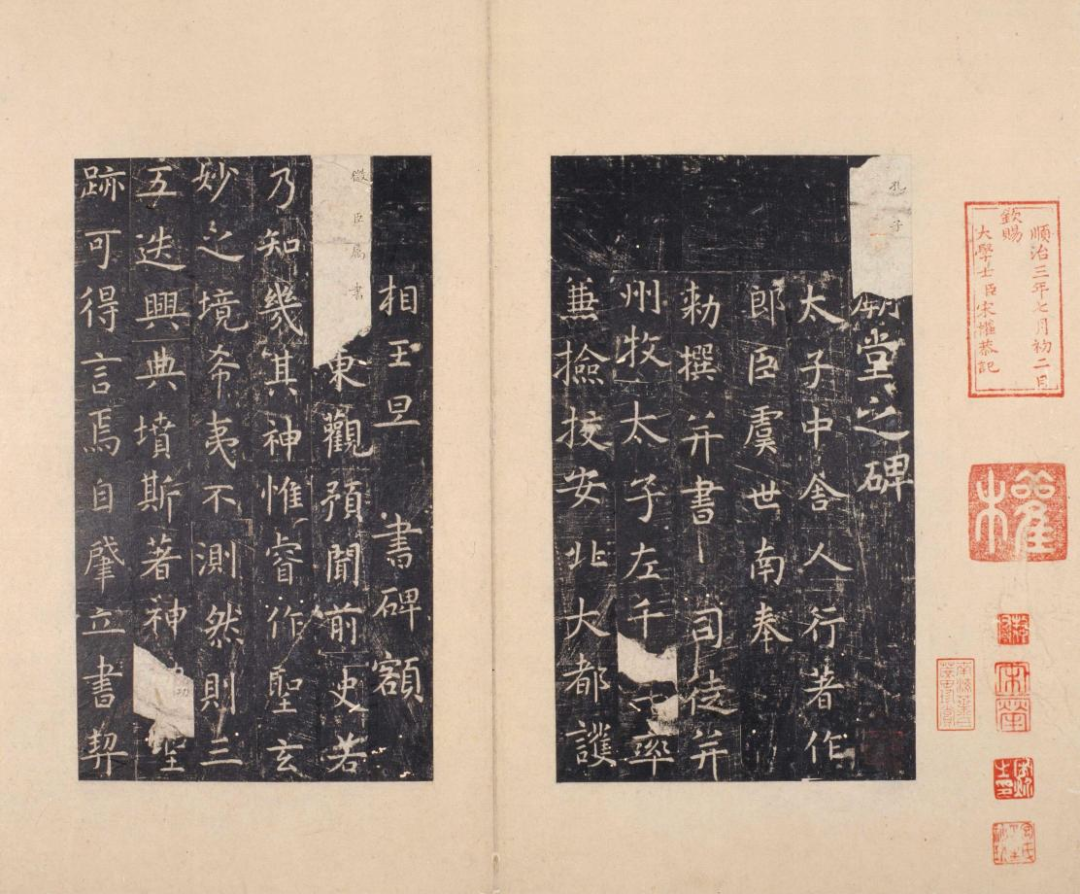 順治三年七月初二日
欽賜
大學士臣宋權恭記
權
孔子廟堂之碑
太子中舍人行著作
郎臣虞世南奉
勑撰并書 司徒并
州牧太子左千率
兼撿挍安北大都護
相王旦 書碑額
微臣屬書東觀預聞前史若
乃知幾其神惟睿作聖玄
妙之境希夷不測然則三
五迭興典墳斯著神功聖
跡可得言焉自肇立書契